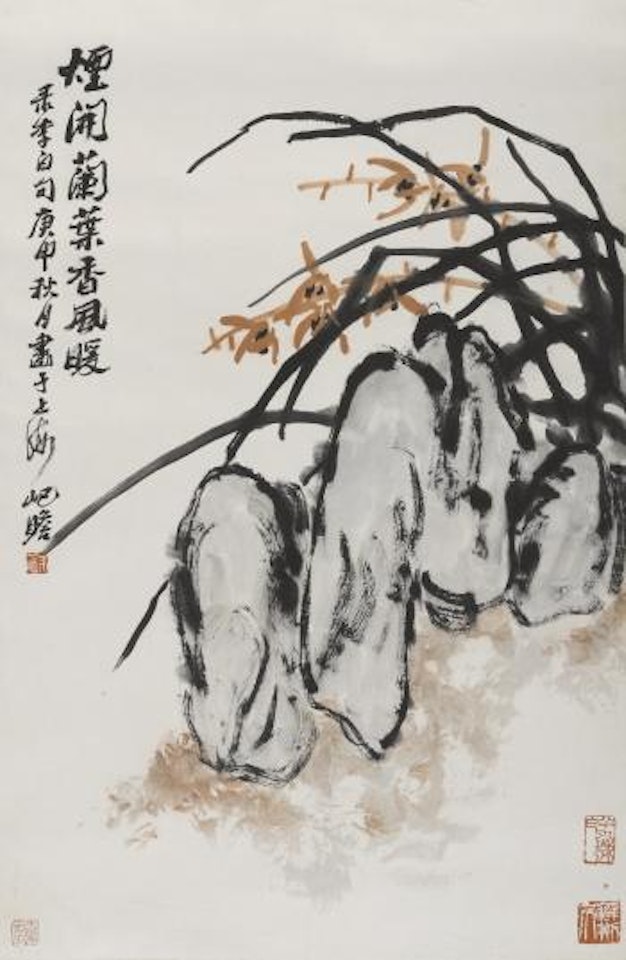 煙開蘭葉香風暖
录李白句庚申秋月畫于上海 屺瞻